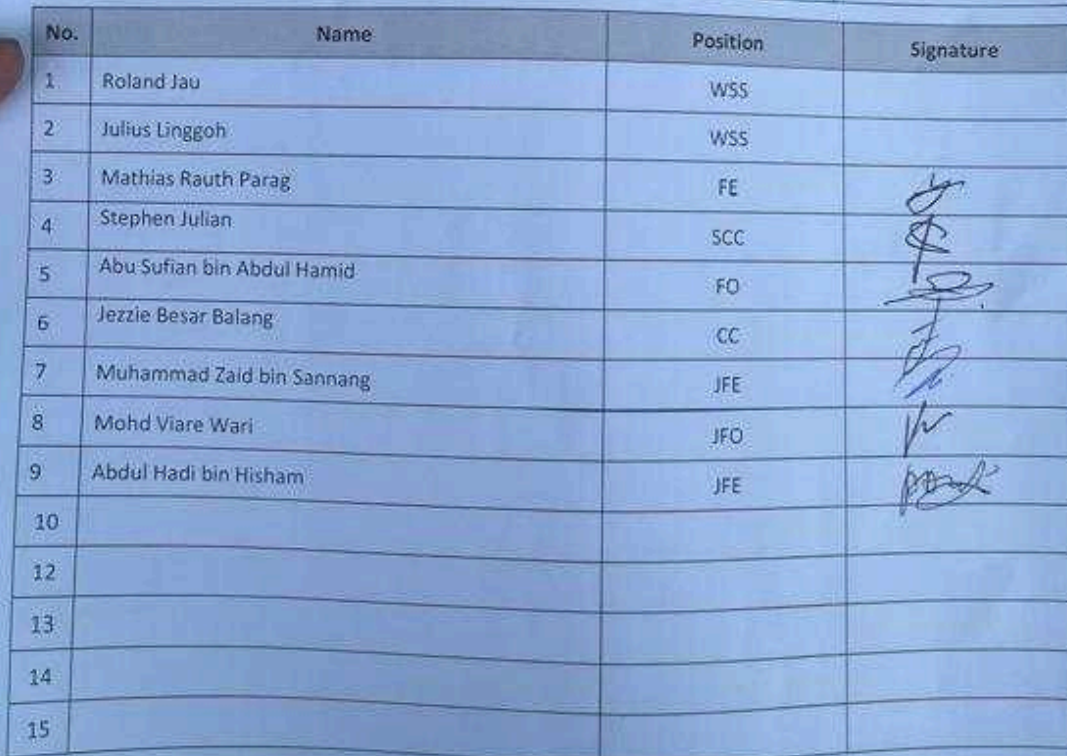 No. Name Position Signature
1 Roland Jau WSS
2 Julius Linggoh WSS
3 Mathias Rauth Parag FE
4 Stephen Julian SCC
5 Abu Sufian bin Abdul Hamid FO
6 Jezzie Besar Balang CC
7 Muhammad Zaid bin Sannang JFE
8 Mohd Viare Wari JFO
9 Abdul Hadi bin Hisham JFE
10
12
13
14
15